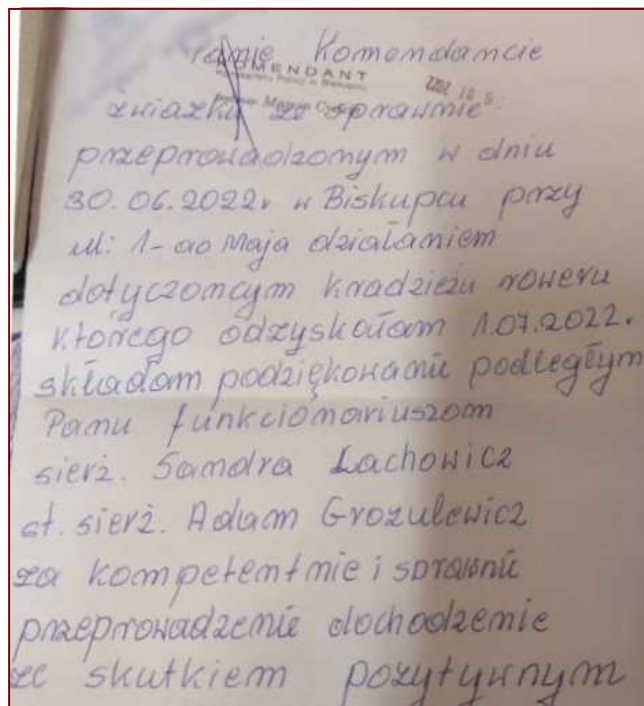 Panie Komendancie
KOMENDANT
związku ze sprawnie
przeprowadzonym w dniu
30.06.2022r w Biskupcu przy
ul: 1-go Maja działaniem
dotyczomcym kradzieżu roweru
którego odzyskałam 1.07.2022r
składam podziękowanie podległym
Panu funkcionariuszom
sierż. Sandra Lachowicz
st. sierż. Adam Grozulewicz
za kompetentnie i sprawnie
przeprowadzenie dochodzenie
ze skutkiem pozytywnym